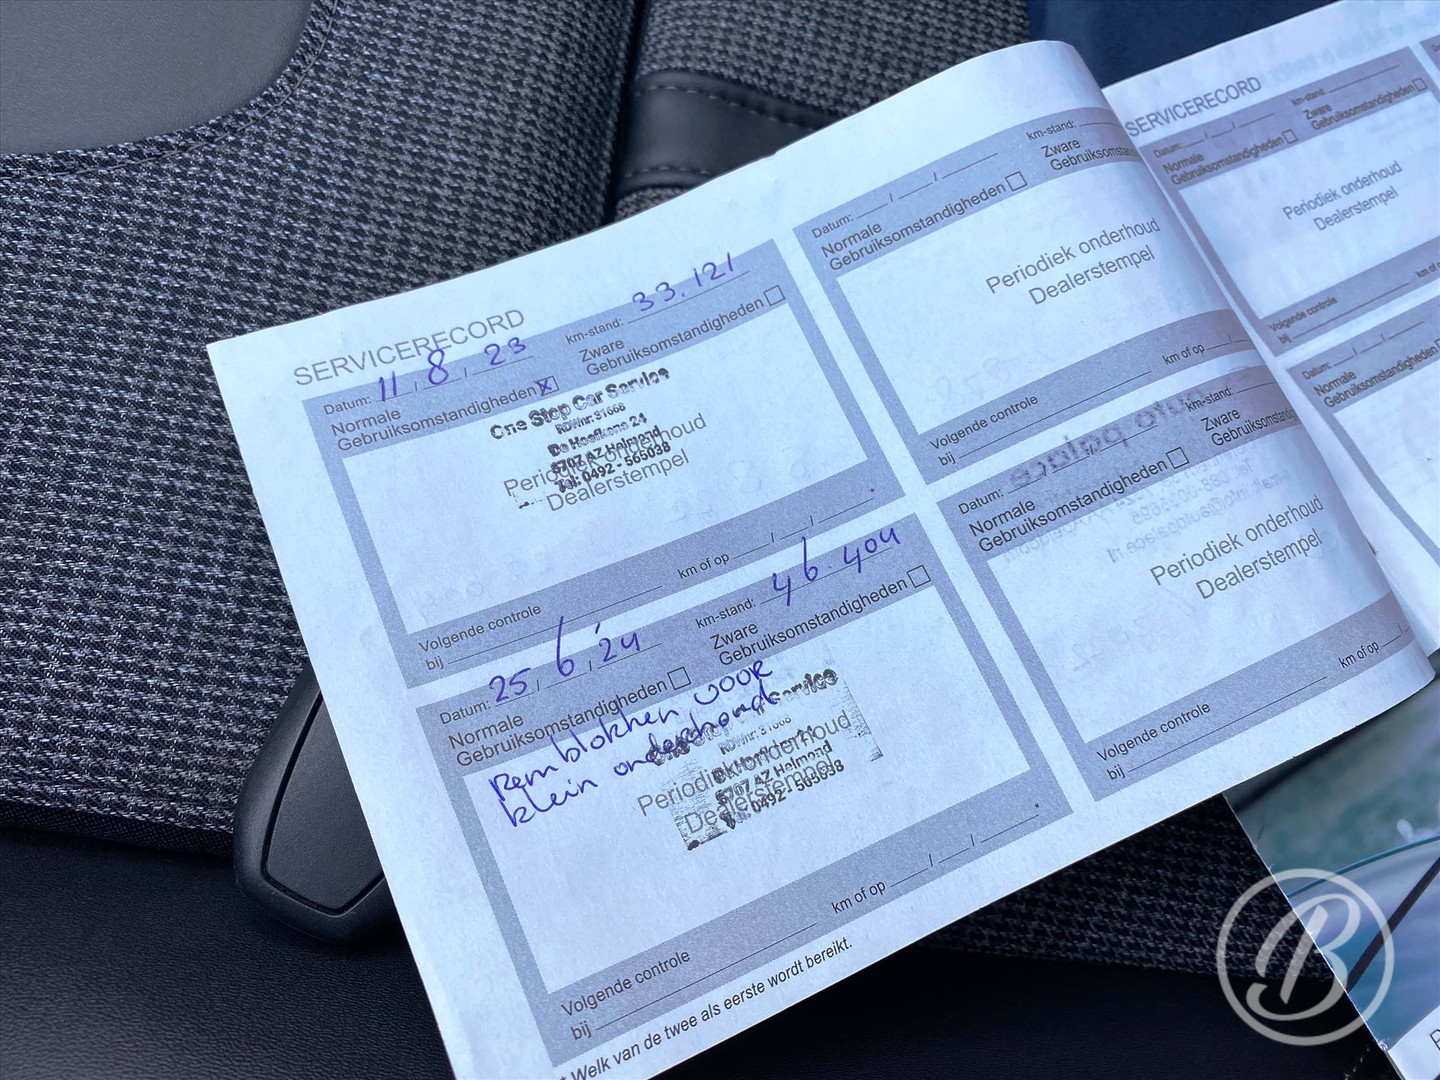 SERVICERECORD
Datum: 11 / 8 / 23 km-stand: 33.121
Normale Gebruiksomstandigheden X Zware Gebruiksomstandigheden
One Stop Car Service
RDWnr: 31668
De Hoefkens 24
5707 AZ Helmond
Tel: 0492 - 565038
Periodiek onderhoud
Dealerstempel
Volgende controle
bij km of op / /
Datum: 25 / 6 / '24 km-stand: 46.404
Normale Gebruiksomstandigheden Zware Gebruiksomstandigheden
Remblokken voor
klein onderhoud
One Stop Car Service
RDWnr: 31668
5707 AZ Helmond
Tel: 0492 - 565038
Periodiek onderhoud
Dealerstempel
Volgende controle
bij km of op / /
* Welk van de twee als eerste wordt bereikt.
Datum: / / km-stand:
Normale Gebruiksomstandigheden Zware
Periodiek onderhoud
Dealerstempel
Volgende controle
bij km of op /
Datum: km-stand:
Normale Gebruiksomstandigheden Zware
Periodiek onderhoud
Dealerstempel
Volgende controle
bij km of op /
SERVICERECORD
Datum: / / km-stand:
Normale Gebruiksomstandigheden Zware Gebruiksomstandigheden
Periodiek onderhoud
Dealerstempel
Volgende controle
bij km of op
Datum: / /
Normale Gebruiksomstandigheden
B